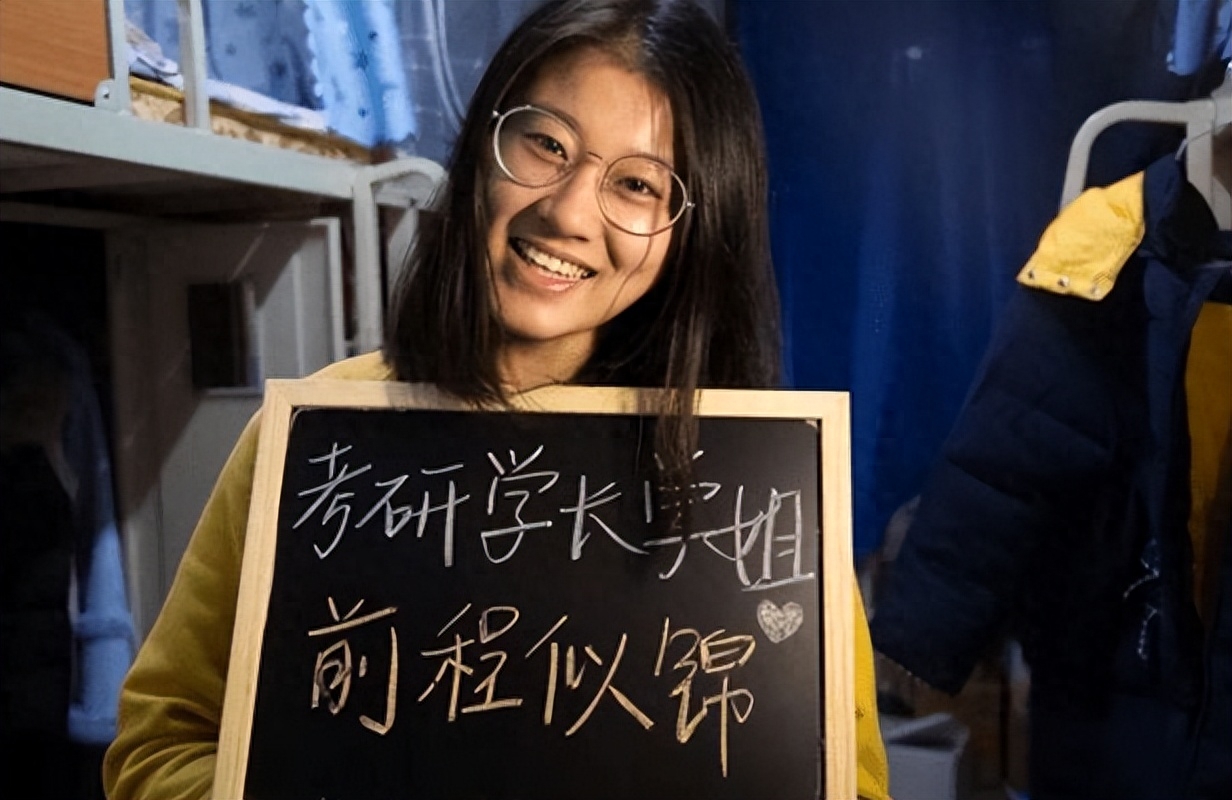 考研学长学姐
前程似锦